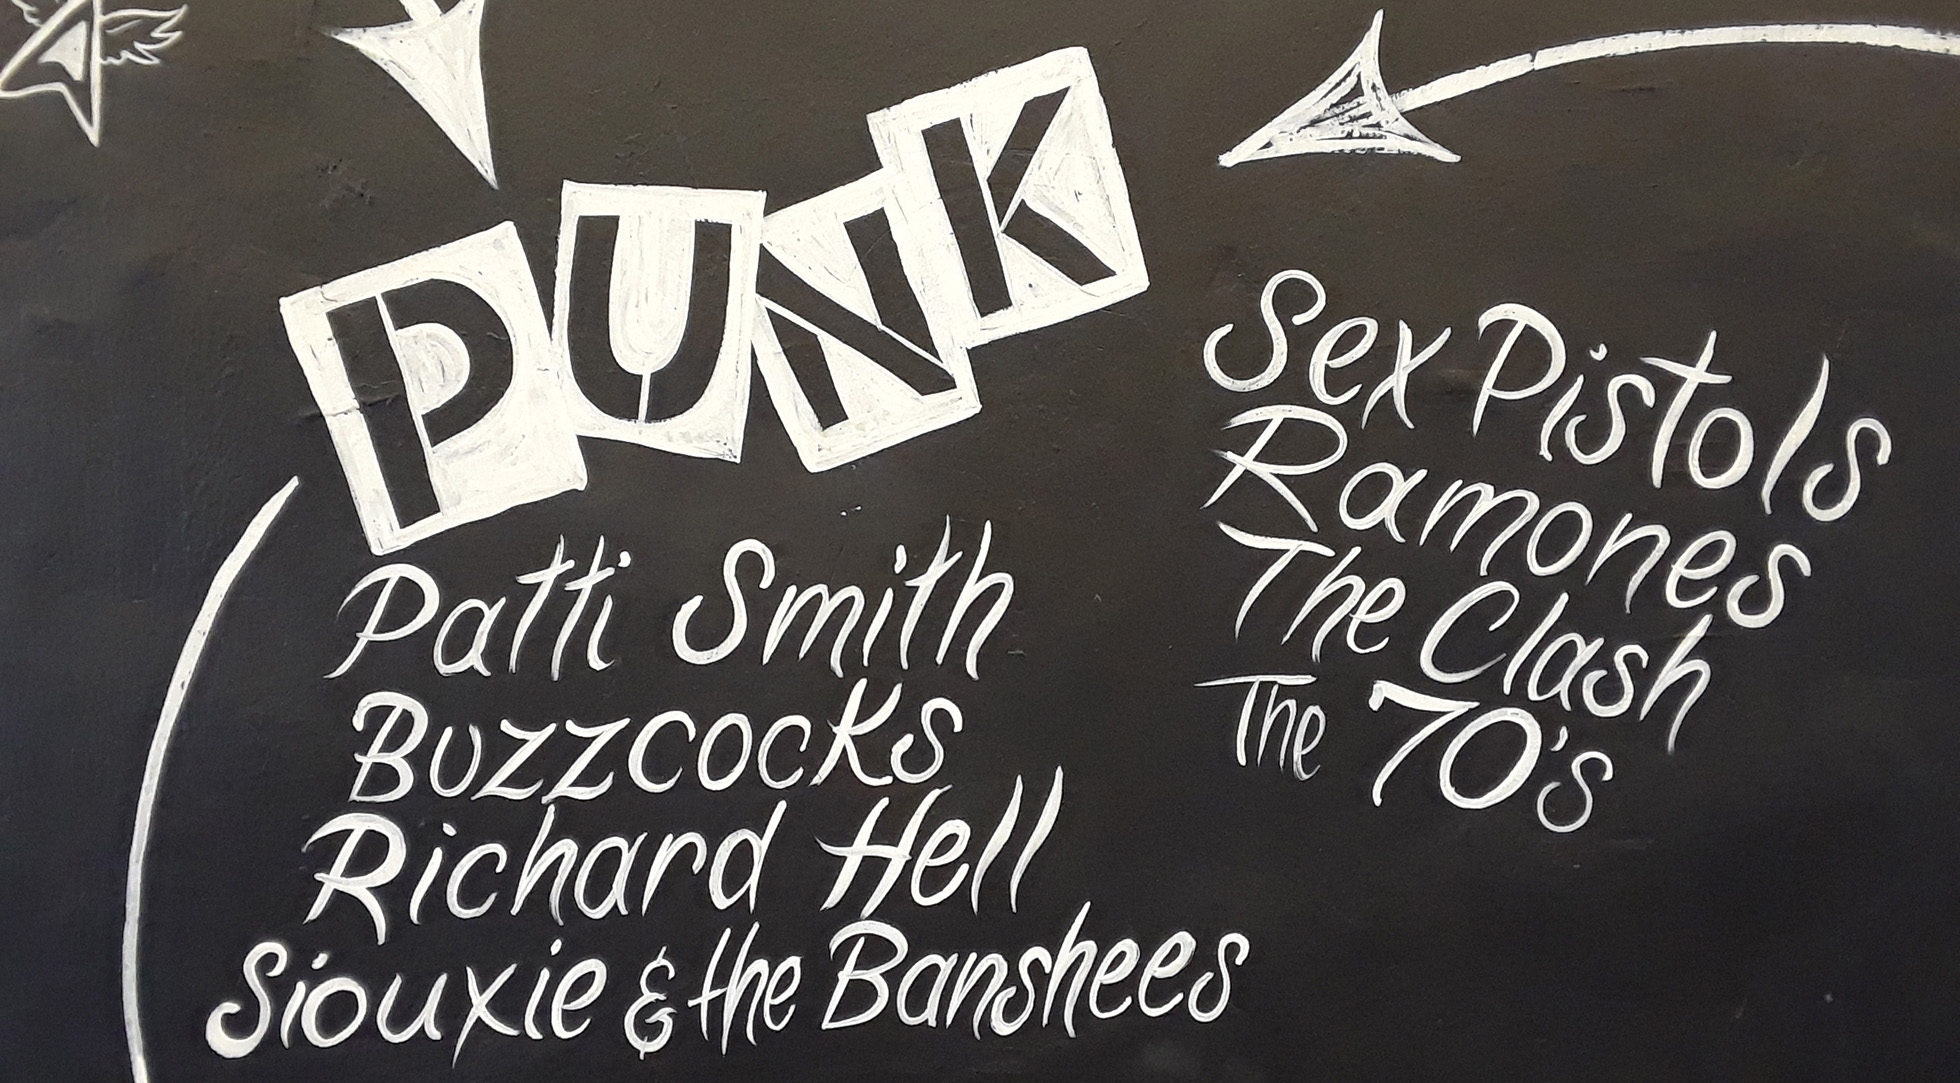 PUNK
Patti Smith
Buzzcocks
Richard Hell
Siouxie & the Banshees
Sex Pistols
Ramones
The Clash
The 70's